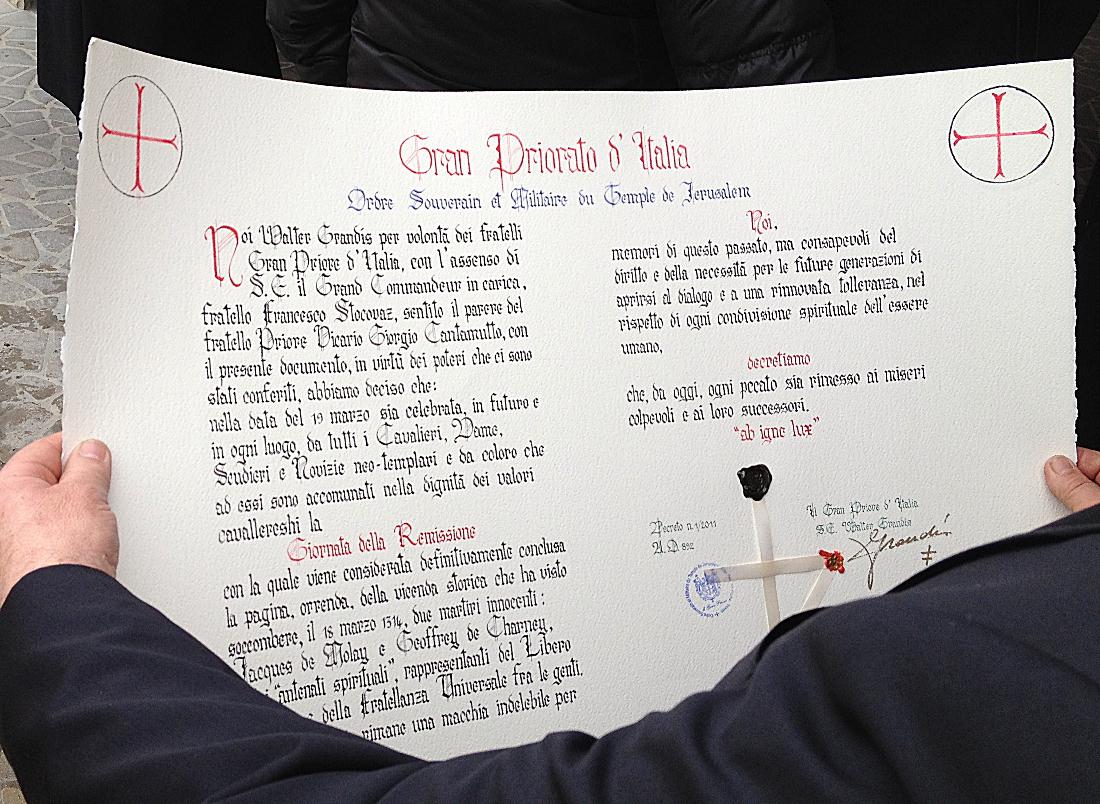 Gran Priorato d'Italia
Ordre Souverain et Militaire du Temple de Jerusalem
Noi Walter Grandis per volontà dei fratelli
Gran Priore d'Italia, con l'assenso di
S.E. il Grand Commandeur in carica,
fratello Francesco Stocovaz, sentito il parere del
fratello Priore Vicario Giorgio Cantamutto, con
il presente documento, in virtù dei poteri che ci sono
stati conferiti, abbiamo deciso che:
nella data del 19 marzo sia celebrata, in futuro e
in ogni luogo, da tutti i Cavalieri, Dame,
Scudieri e Novizie neo-templari e da coloro che
ad essi sono accomunati nella dignità dei valori
cavallereshi la
Giornata della Remissione
con la quale viene considerata definitivamente conclusa
la pagina, orrenda, della vicenda storica che ha visto
soccombere, il 18 marzo 1314, due martiri innocenti:
Jacques de Molay e Geoffrey de Charney,
"antenati spirituali", rappresentanti del Libero
della Fratellanza Universale fra le genti.
rimane una macchia indelebile per
Noi,
memori di questo passato, ma consapevoli del
diritto e della necessità per le future generazioni di
aprirsi al dialogo e a una rinnovata tolleranza, nel
rispetto di ogni condivisione spirituale dell'essere
umano,
decretiamo
che, da oggi, ogni pccato sia rimesso ai miseri
colpevoli e ai loro successori.
"ab igne lux"
Decreto n.1/2011
A.D. 892
Il Gran Priore d'Italia
S.E. Walter Grandis
Grandis